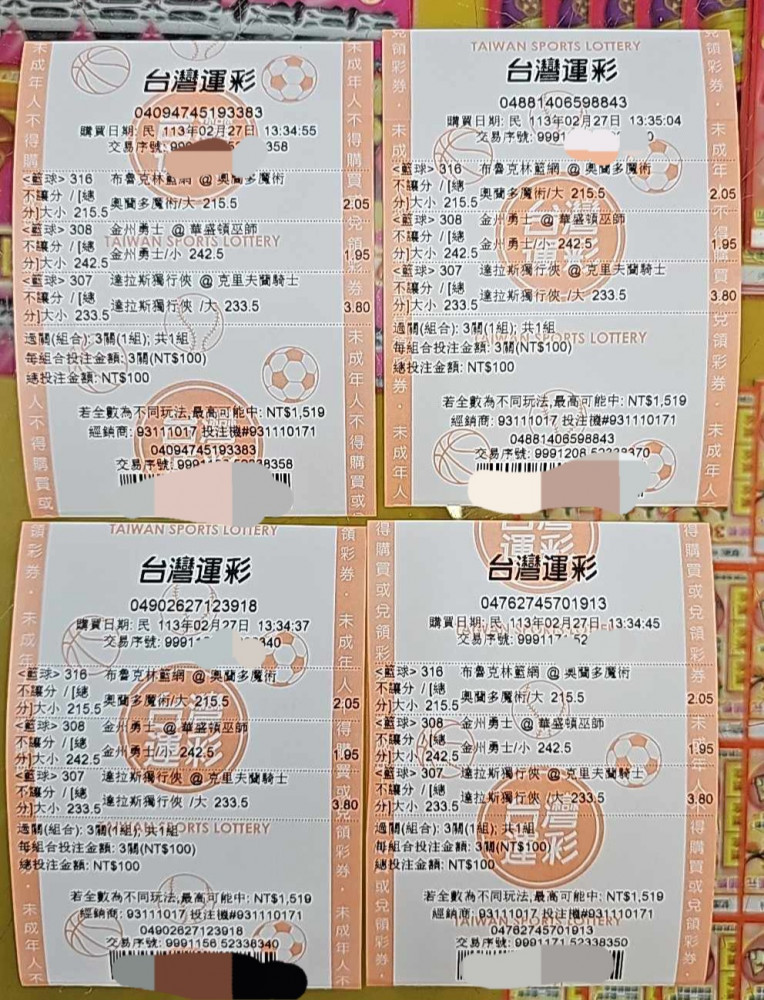 台灣運彩
04094745193383
購買日期: 民 113年02月27日 13:34:55
交易序號: 999 358
<籃球> 316 布魯克林籃網 @ 奧蘭多魔術
不讓分 / [總
分]大小 215.5 奧蘭多魔術/大 215.5 2.05
<籃球> 308 金州勇士 @ 華盛頓巫師
不讓分 / [總
分]大小 242.5 金州勇士/小 242.5 1.95
<籃球> 307 達拉斯獨行俠 @ 克里夫蘭騎士
不讓分 / [總
分]大小 233.5 達拉斯獨行俠 /大 233.5 3.80
過關(組合): 3關(1組); 共1組
每組合投注金額: 3關(NT$100)
總投注金額: NT$100
若全數為不同玩法,最高可能中: NT$1,519
經銷商: 93111017 投注機#931110171
04094745193383
TAIWAN SPORTS LOTTERY
台灣運彩
04881406598843
購買日期: 民 113年02月27日 13:35:04
交易序號: 9991 0
<籃球> 316 布魯克林籃網 @ 奧蘭多魔術
不讓分 / [總
分]大小 215.5 奧蘭多魔術/大 215.5 2.05
<籃球> 308 金州勇士 @ 華盛頓巫師
不讓分 / [總
分]大小 242.5 金州勇士/小 242.5 1.95
<籃球> 307 達拉斯獨行俠 @ 克里夫蘭騎士
不讓分 / [總
分]大小 233.5 達拉斯獨行俠 /大 233.5 3.80
過關(組合): 3關(1組); 共1組
每組合投注金額: 3關(NT$100)
總投注金額: NT$100
若全數為不同玩法,最高可能中: NT$1,519
經銷商: 93111017 投注機#931110171
04881406598843
交易序號: 9991208 52338370
TAIWAN SPORTS LOTTERY
台灣運彩
04902627123918
購買日期: 民 113年02月27日 13:34:37
交易序號: 9991 340
<籃球> 316 布魯克林籃網 @ 奧蘭多魔術
不讓分 / [總
分]大小 215.5 奧蘭多魔術/大 215.5 2.05
<籃球> 308 金州勇士 @ 華盛頓巫師
不讓分 / [總
分]大小 242.5 金州勇士/小 242.5 1.95
<籃球> 307 達拉斯獨行俠 @ 克里夫蘭騎士
不讓分 / [總
分]大小 233.5 達拉斯獨行俠 /大 233.5 3.80
過關(組合): 3關(1組); 共1組
每組合投注金額: 3關(NT$100)
總投注金額: NT$100
若全數為不同玩法,最高可能中: NT$1,519
經銷商: 93111017 投注機#931110171
04902627123918
交易序號: 9991156 52338340
台灣運彩
04762745701913
購買日期: 民 113年02月27日 13:34:45
交易序號: 999117 52
<籃球> 316 布魯克林籃網 @ 奧蘭多魔術
不讓分 / [總
分]大小 215.5 奧蘭多魔術/大 215.5 2.05
<籃球> 308 金州勇士 @ 華盛頓巫師
不讓分 / [總
分]大小 242.5 金州勇士/小 242.5 1.95
<籃球> 307 達拉斯獨行俠 @ 克里夫蘭騎士
不讓分 / [總
分]大小 233.5 達拉斯獨行俠 /大 233.5 3.80
過關(組合): 3關(1組); 共1組
每組合投注金額: 3關(NT$100)
總投注金額: NT$100
若全數為不同玩法,最高可能中: NT$1,519
經銷商: 93111017 投注機#931110171
04762745701913
交易序號: 9991171 52338350